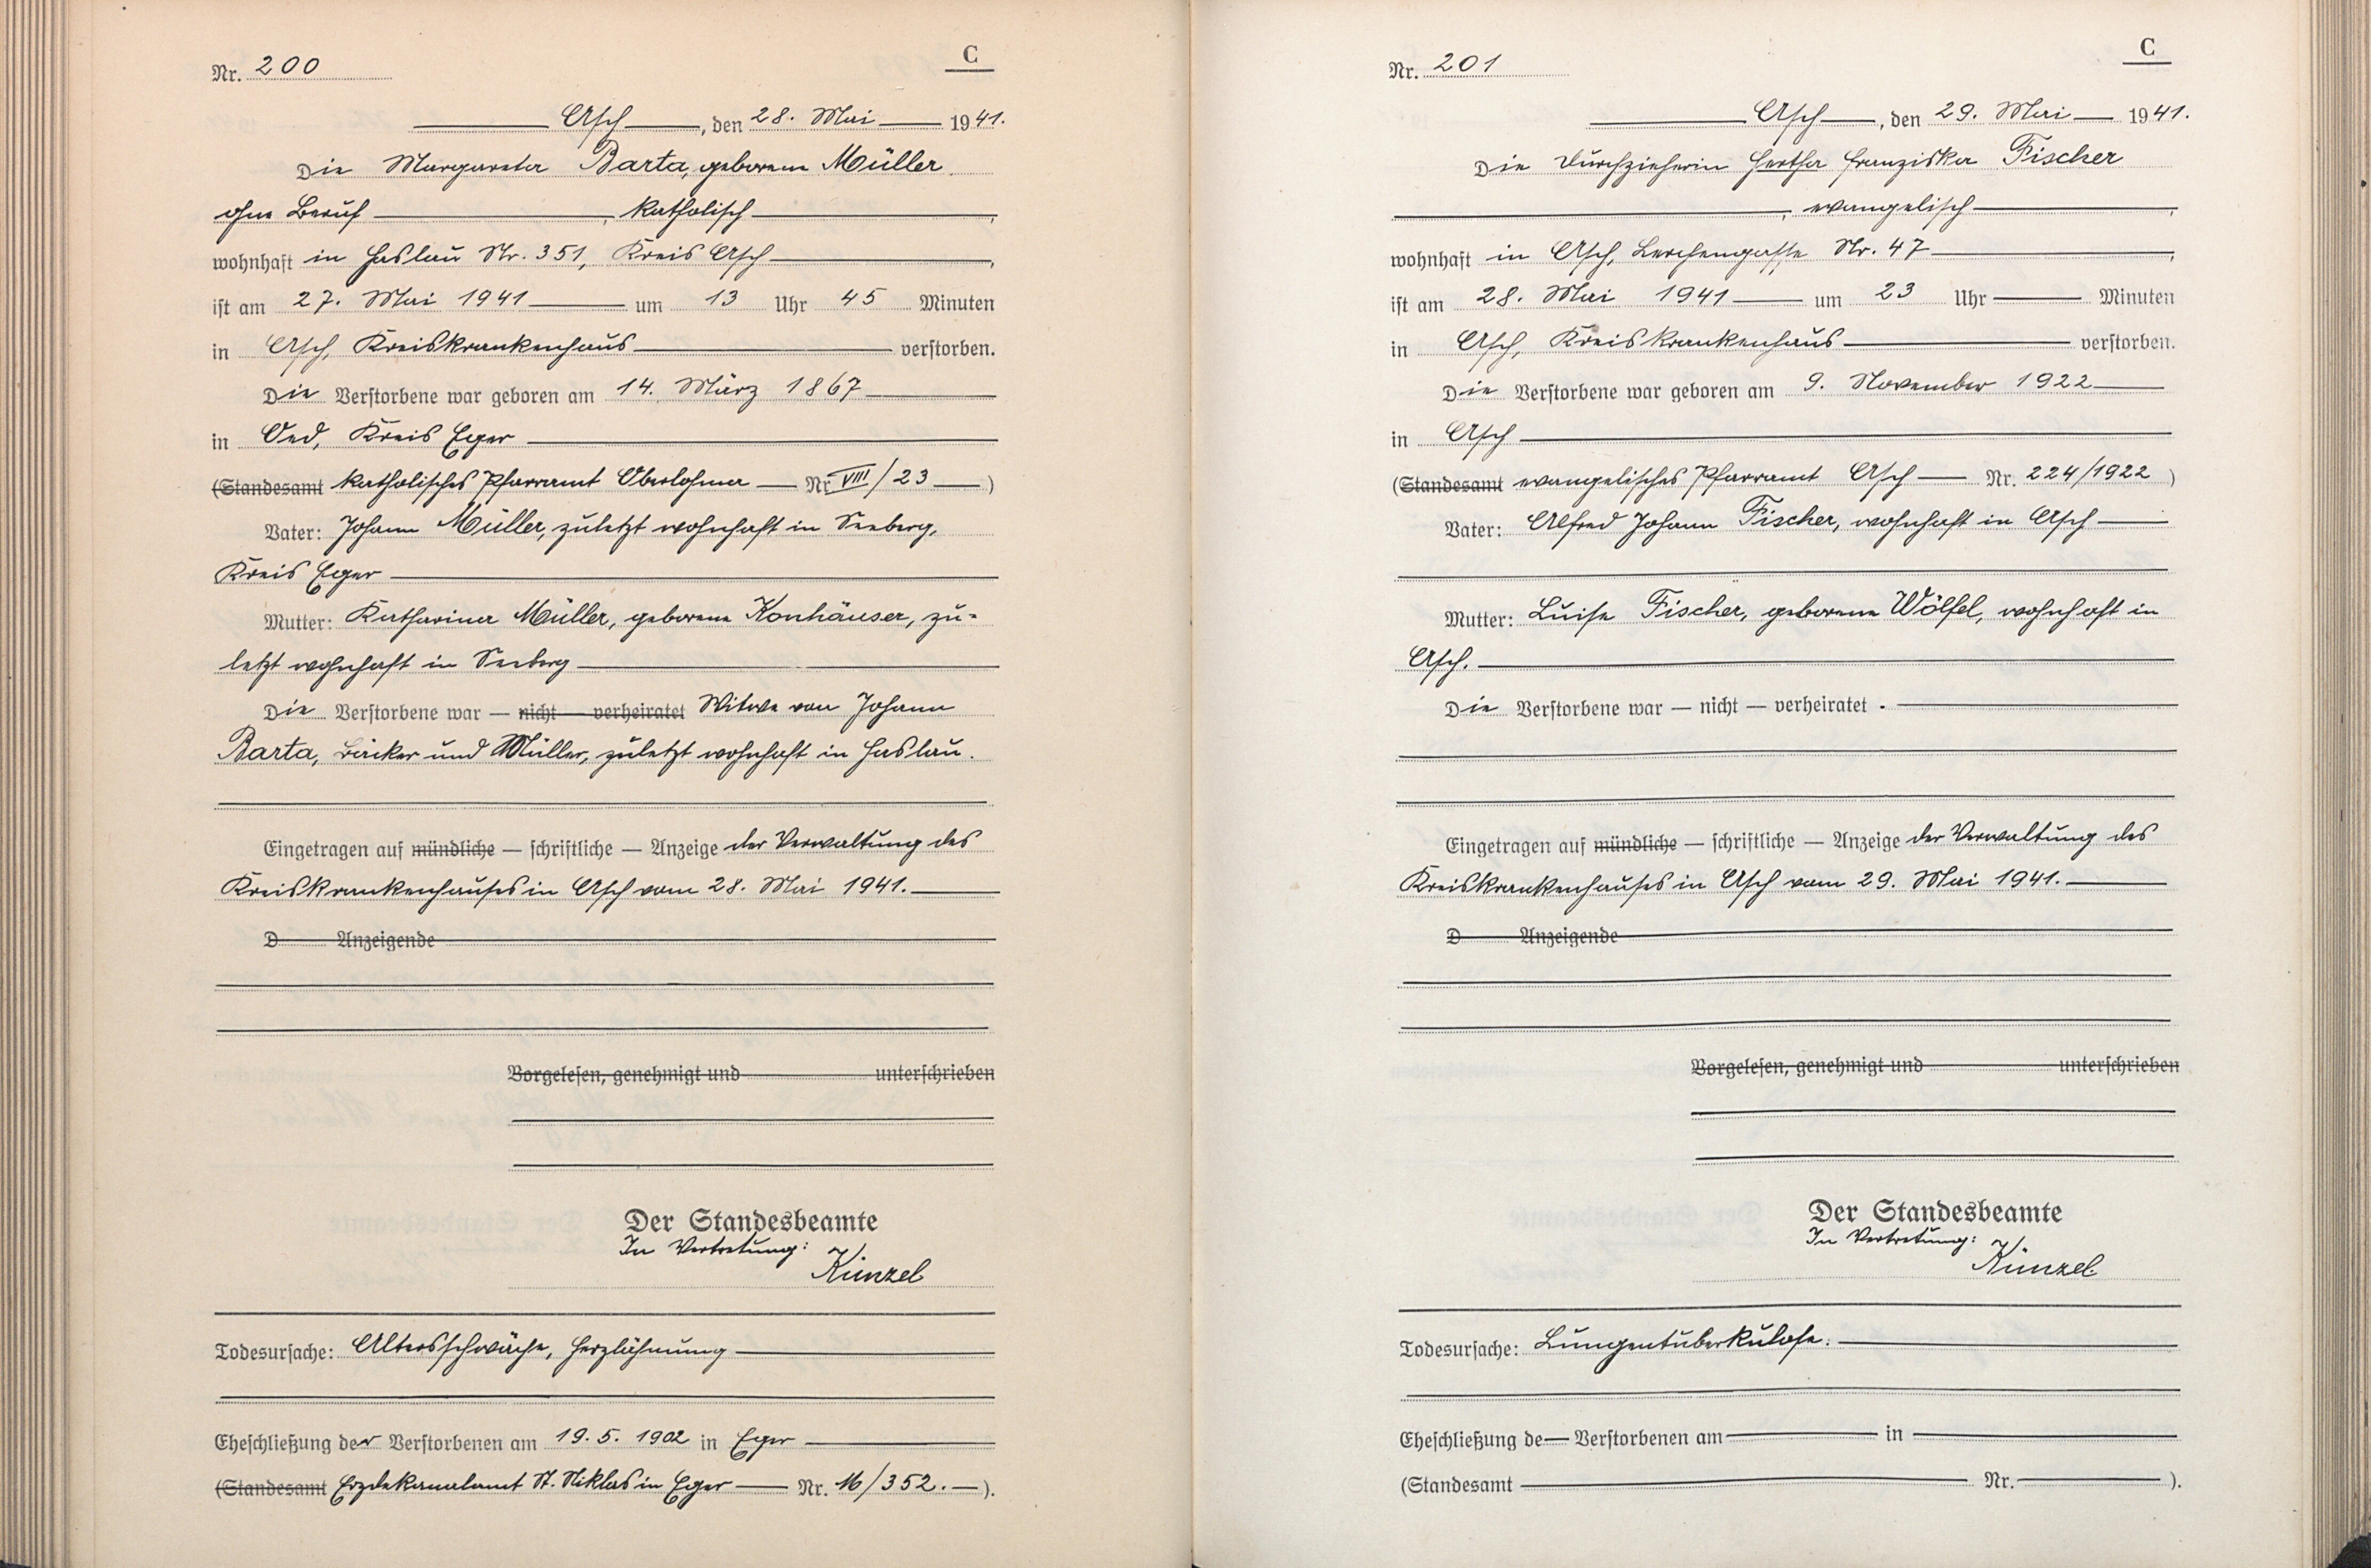 Nr. 200
C
Asch, den 28. Mai 1941.
Die Margareta Barta, geborene Müller
ohne Beruf, katholisch,
wohnhaft in Haslau Nr. 351, Kreis Asch,
ist am 27. Mai 1941 um 13 Uhr 45 Minuten
in Asch, Kreiskrankenhaus verstorben.
Die Verstorbene war geboren am 14. März 1867
in Oed, Kreis Eger
(Standesamt katholisches Pfarramt Oberlohma Nr. VIII/23)
Vater: Johann Müller, zuletzt wohnhaft in Seeberg,
Kreis Eger
Mutter: Katharina Müller, geborene Konhäuser, zu-
letzt wohnhaft in Seeberg
Die Verstorbene war — nicht — verheiratet Witwe von Johann
Barta, Bäcker und Müller, zuletzt wohnhaft in Haslau.
Eingetragen auf mündliche — schriftliche — Anzeige der Verwaltung des
Kreiskrankenhauses in Asch vom 28. Mai 1941.
D Anzeigende
Vorgelesen, genehmigt und unterschrieben
Der Standesbeamte
In Vertretung:
Künzel
Todesursache: Altersschwäche, Herzlähmung
Eheschließung der Verstorbenen am 19. 5. 1902 in Eger
(Standesamt Erzdekanalamt St. Niklas in Eger Nr. 16/352.).
Nr. 201
C
Asch, den 29. Mai 1941.
Die Durchzieherin Hertha Franziska Fischer
, evangelisch,
wohnhaft in Asch, Lerchengasse Nr. 47,
ist am 28. Mai 1941 um 23 Uhr Minuten
in Asch, Kreiskrankenhaus verstorben.
Die Verstorbene war geboren am 9. November 1922
in Asch
(Standesamt evangelisches Pfarramt Asch Nr. 224/1922)
Vater: Alfred Johann Fischer, wohnhaft in Asch
Mutter: Luise Fischer, geborene Wölfel, wohnhaft in
Asch.
Die Verstorbene war — nicht — verheiratet.
Eingetragen auf mündliche — schriftliche — Anzeige der Verwaltung des
Kreiskrankenhauses in Asch vom 29. Mai 1941.
D Anzeigende
Vorgelesen, genehmigt und unterschrieben
Der Standesbeamte
In Vertretung:
Künzel
Todesursache: Lungentuberkulose.
Eheschließung de Verstorbenen am in
(Standesamt Nr. ).